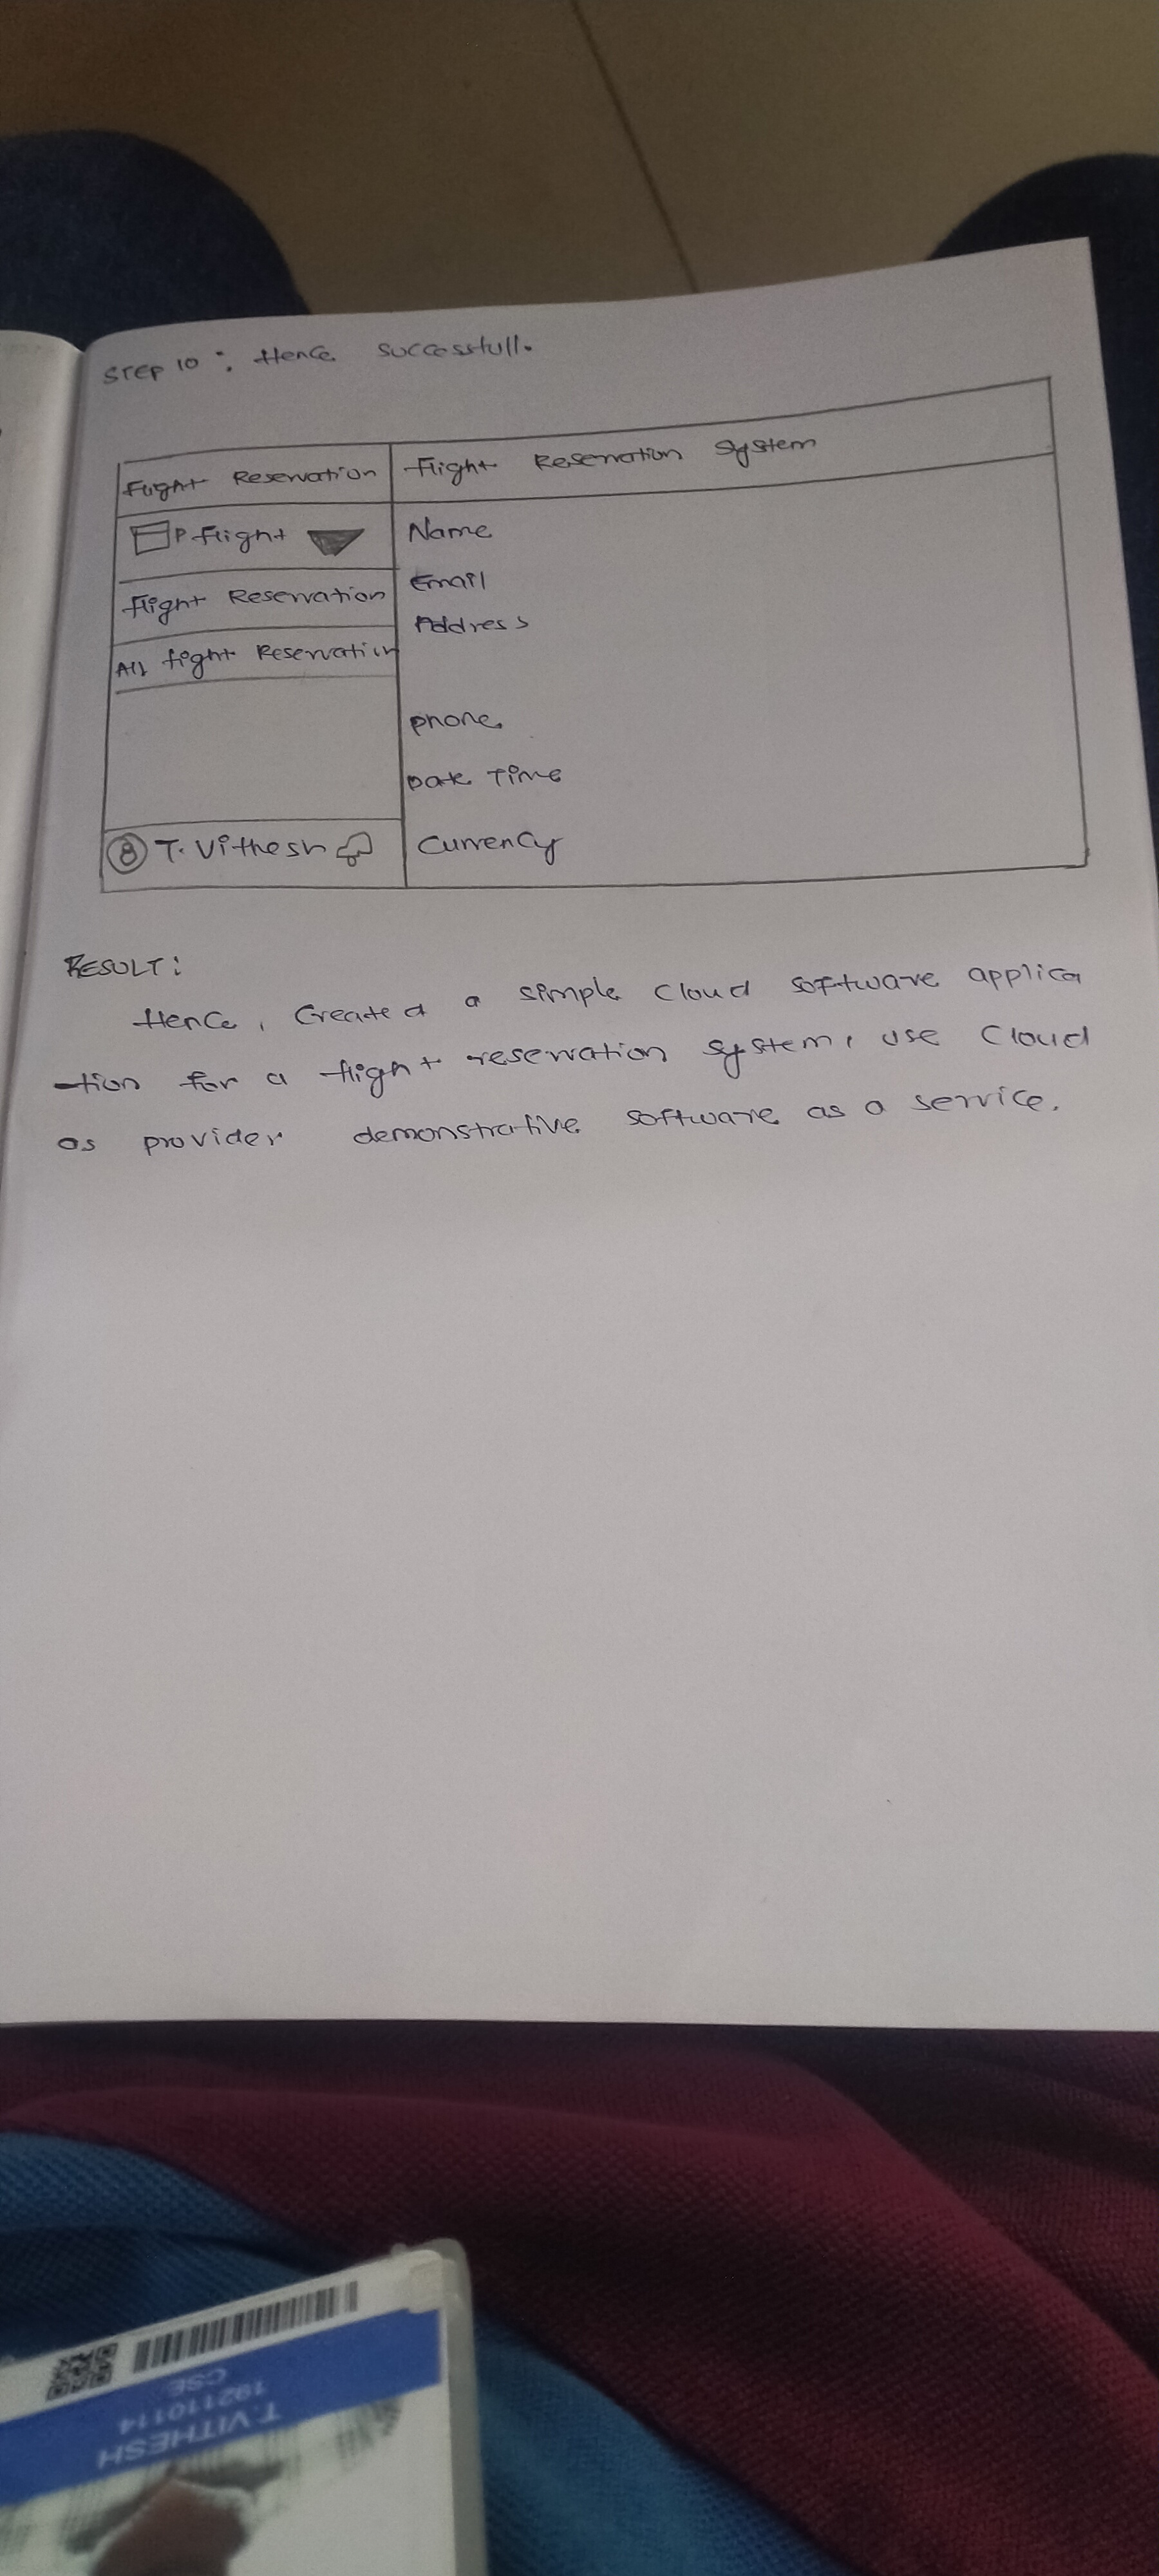 STEP 10 : Hence successfull.
Flight Reservation
Flight Reservation System
P flight
Name
Email
Flight Reservation
Address
All flight Reservation
phone
Date Time
T. Vithesh
Currency
RESULT:
Hence, Created a simple cloud software applica
-tion for a flight reservation system, use cloud
as provider demonstrative software as a service.
CSE
192110114
T.VITHESH